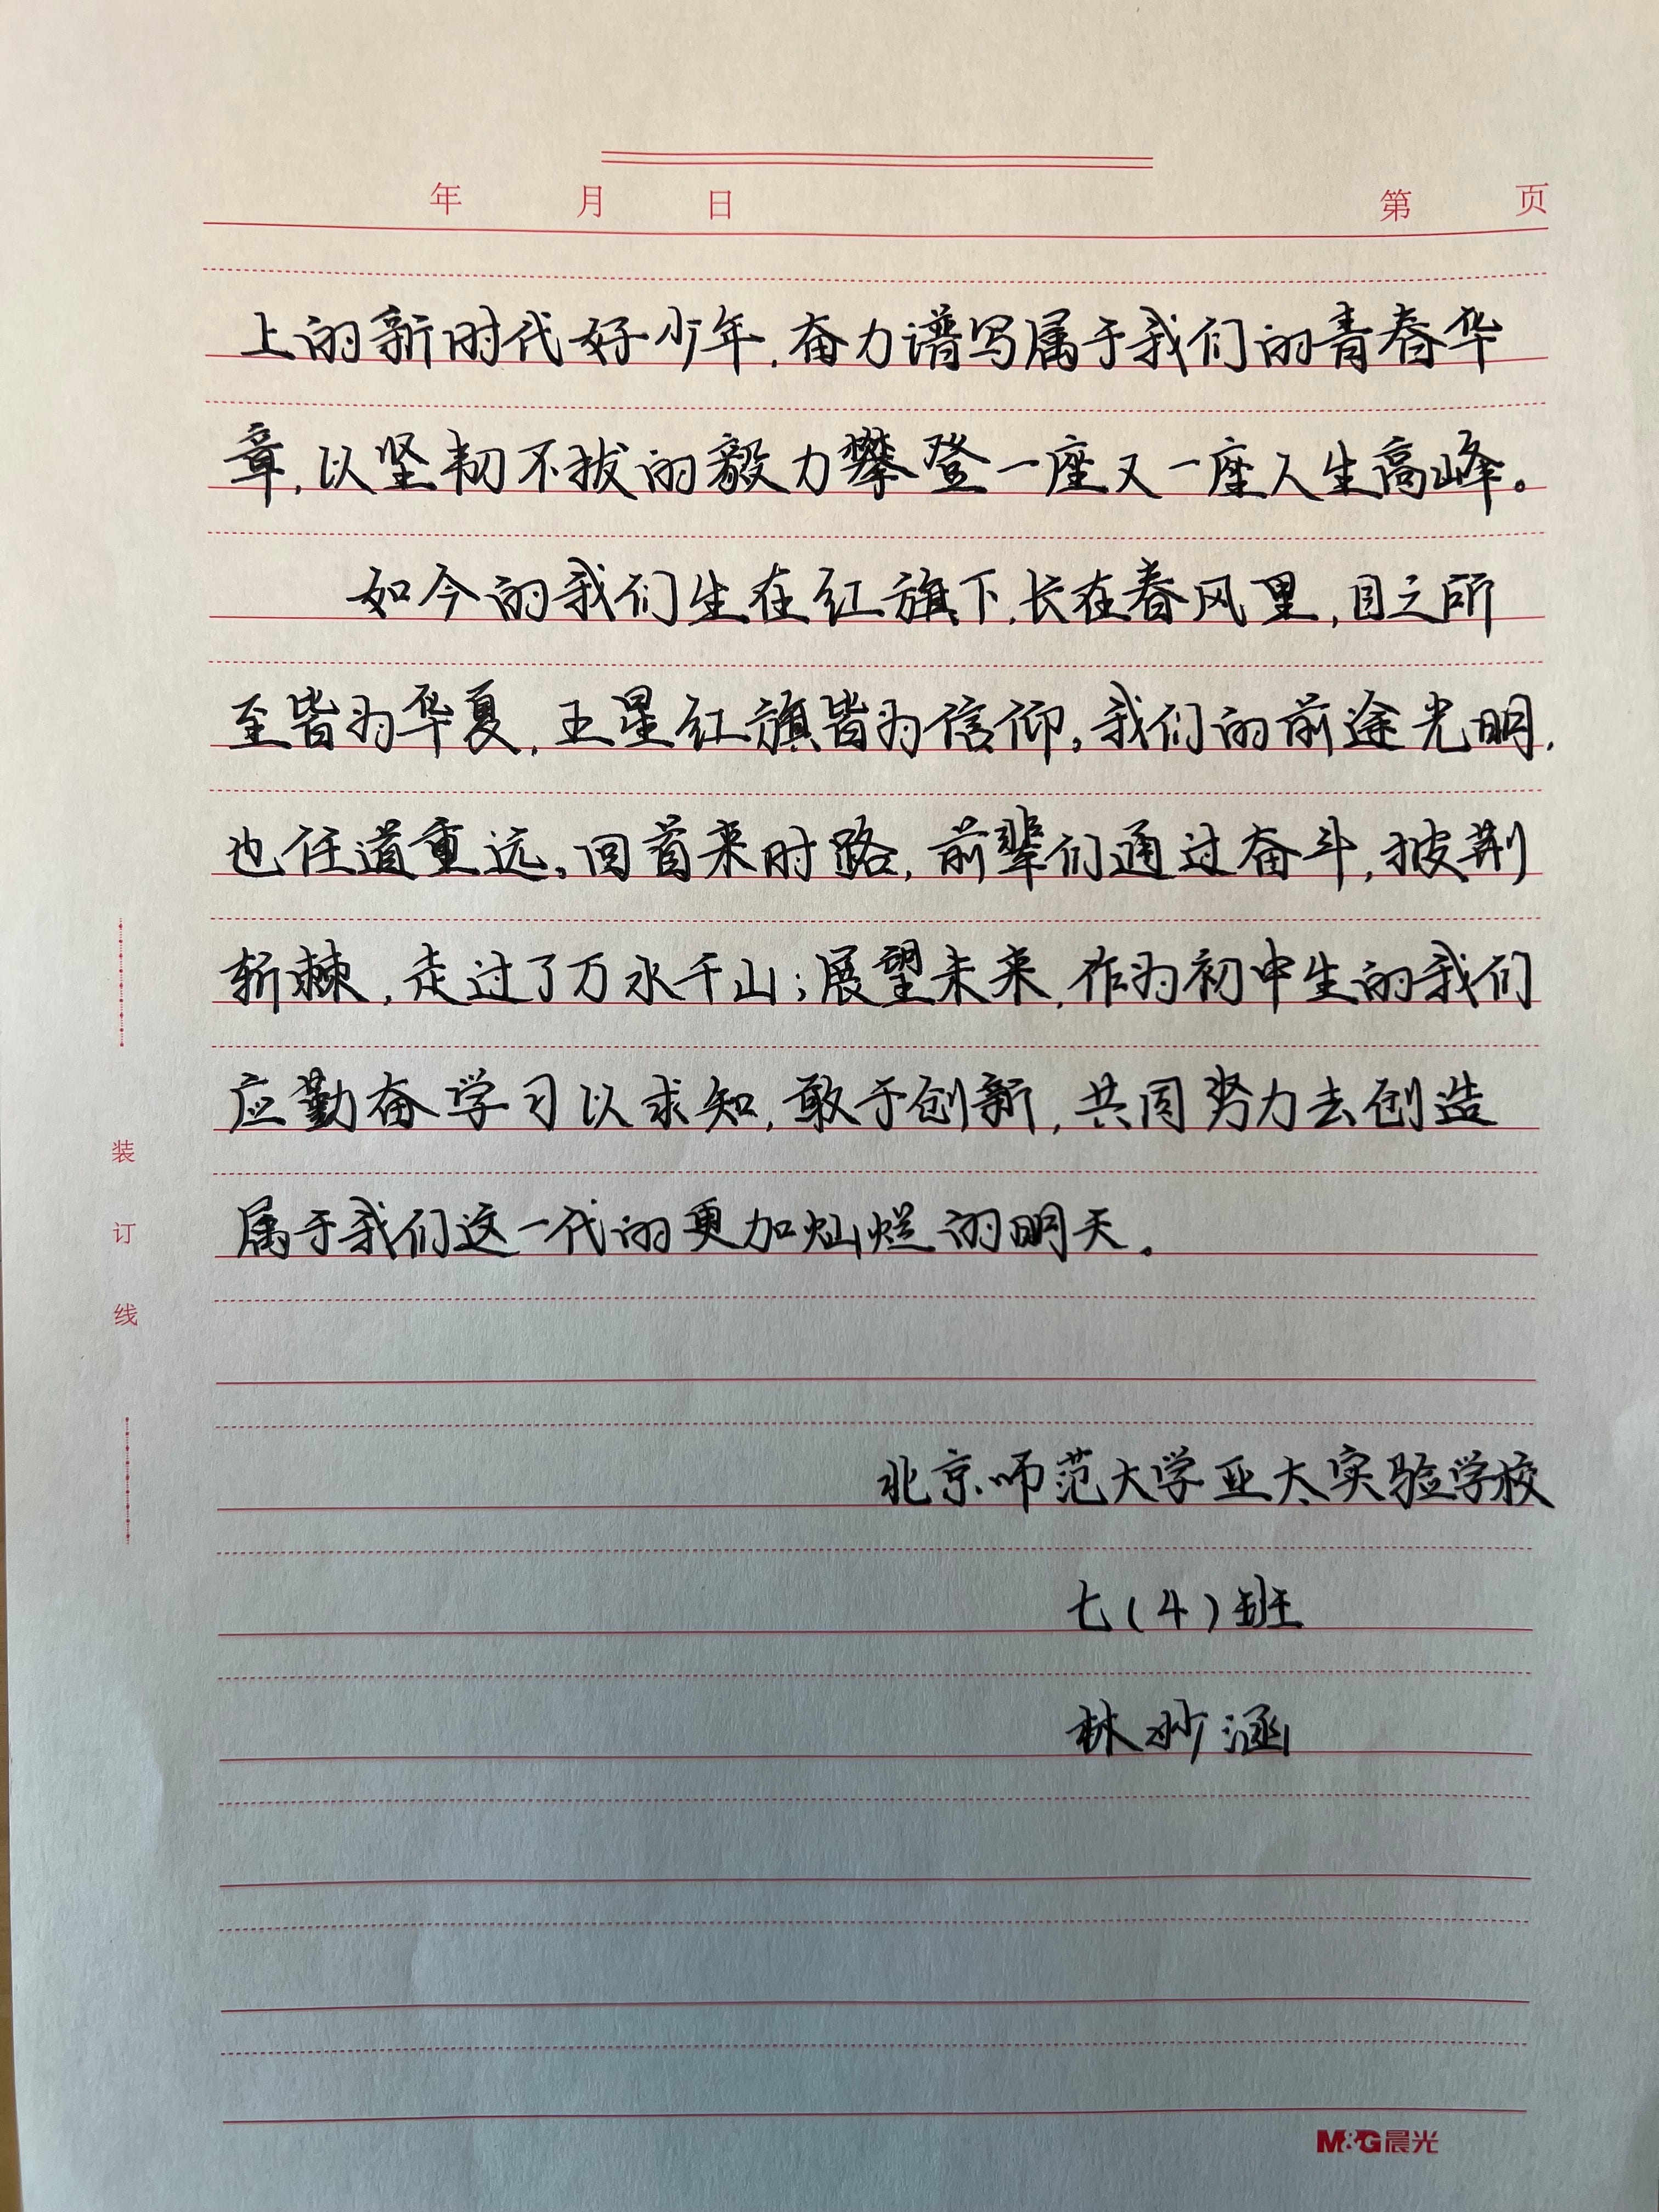 年 月 日 第 页
上的新时代好少年,奋力谱写属于我们的青春华
章,以坚韧不拔的毅力攀登一座又一座人生高峰。
如今的我们生在红旗下,长在春风里,目之所
至皆为华夏,五星红旗皆为信仰,我们的前途光明,
也任道重远。回首来时路,前辈们通过奋斗,披荆
斩棘,走过了万水千山;展望未来,作为初中生的我们
应勤奋学习以求知,敢于创新,共同努力去创造
属于我们这一代的更加灿烂的明天。
装订线
北京师范大学亚太实验学校
七(4)班
林妙涵
M&G晨光